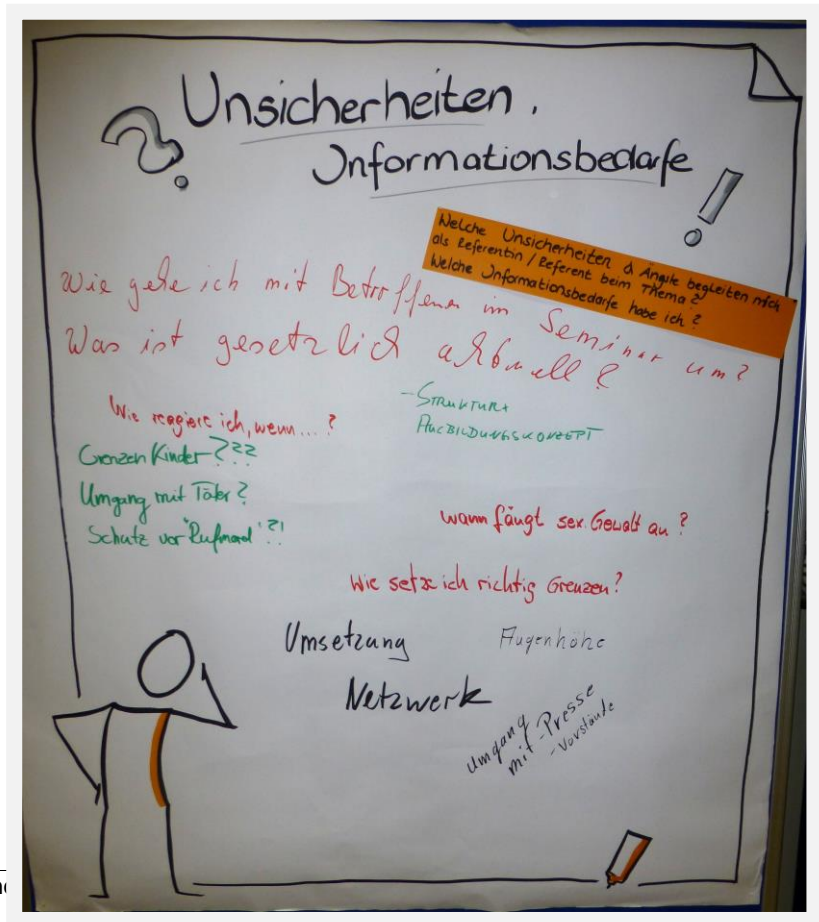 ?
Unsicherheiten,
Informationsbedarfe
!
Welche Unsicherheiten & Ängste begleiten mich
als Referentin / Referent beim Thema?
Welche Informationsbedarfe habe ich?
Wie gehe ich mit Betroffenen im Seminar um?
Was ist gesetzlich aktuell?
Wie reagiere ich, wenn...?
Grenzen Kinder???
Umgang mit Täter?
Schutz vor "Rufmord"?!
- STRUKTUR +
AUSBILDUNGSKONZEPT
wann fängt sex. Gewalt an?
Wie setze ich richtig Grenzen?
Umsetzung
Augenhöhe
Netzwerk
Umgang
mit - Presse
- Vorstände